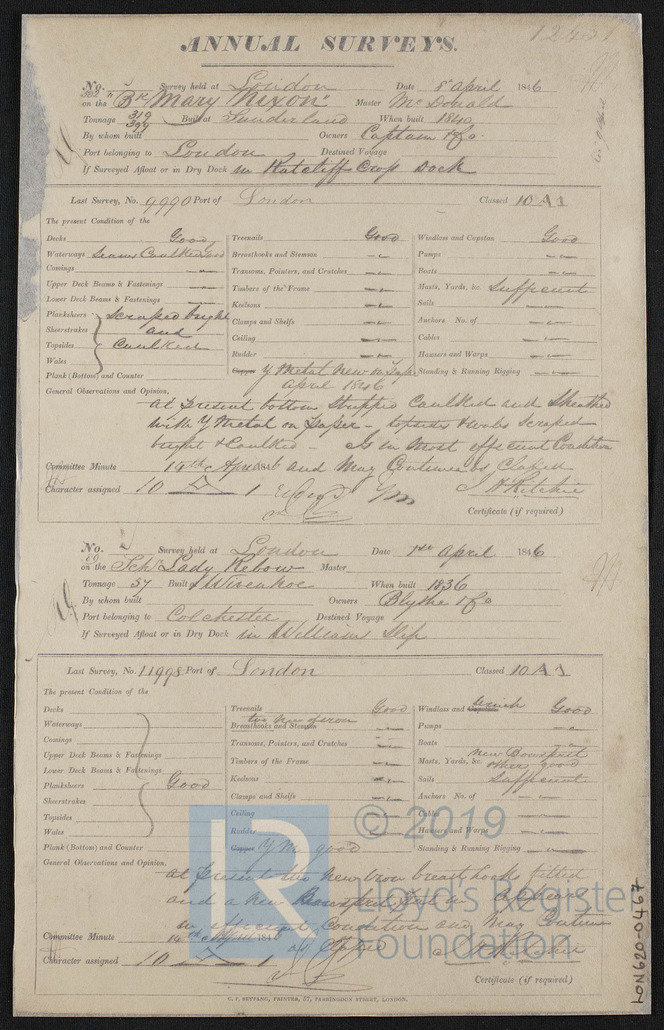 12431
ANNUAL SURVEYS.
No. Survey held at London Date 8 April 1846
on the Bk Mary Nixon Master McDonald
Tonnage 319 Built at Sunderland When built 1840
397
By whom built Owners Captain & Co.
Port belonging to London Destined Voyage
If Surveyed Afloat or in Dry Dock in Ratcliff Cross Dock
Last Survey, No. 9990 Port of London Classed 10 A 1
The present Condition of the
Decks Good Treenails Good Windlass and Capstan Good
Waterways Seams Caulked Breasthooks and Stemson Pumps
Comings Transoms, Pointers, and Crutches Boats
Upper Deck Beams & Fastenings Timbers of the Frame Masts, Yards, &c. Sufficient
Lower Deck Beams & Fastenings Keelsons Sails
Planksheers scraped bright Clamps and Shelfs Anchors No. of
Sheerstrakes and Ceiling Cables
Topsides Caulked Rudder Hawsers and Warps
Wales Copper Y Metal New on Standing & Running Rigging
Plank (Bottom) and Counter April 1846
General Observations and Opinion,
at present bottom stripped Caulked and Sheathed
with Y Metal on paper – topsides & wales scraped
bright & Caulked – Is in most efficient Condition
Committee Minute 14th April 1846 and May Continue as Classed
Character assigned 10 A 1
Certificate (if required)
No. Survey held at London Date 1st April 1846
on the Schr Lady Rebow Master
Tonnage 57 Built at Wivenhoe When built 1836
By whom built Owners Blythe & Co
Port belonging to Colchester Destined Voyage
If Surveyed Afloat or in Dry Dock in Williams Slip
Last Survey, No. 11998 Port of London Classed 10 A 1
The present Condition of the
Decks Treenails Good Windlass and Capstan winch Good
Waterways two new of iron Breasthooks and Stemson Pumps
Comings Transoms, Pointers, and Crutches Boats
Upper Deck Beams & Fastenings Timbers of the Frame Masts, Yards, &c. New Bowsprit others good
Lower Deck Beams & Fastenings Keelsons Sails Sufficient
Planksheers Good Clamps and Shelfs Anchors No. of
Sheerstrakes Ceiling Cables
Topsides Rudder Hawsers and Warps
Wales Copper Y M good Standing & Running Rigging
Plank (Bottom) and Counter
General Observations and Opinion,
at present two new iron breast hooks fitted
and a new Bowsprit
in efficient Condition and May Continue
Committee Minute 14th April 1846 as Classed
Character assigned 10 A 1
Certificate (if required)
C. F. SEYFANG, PRINTER, 57, FARRINGDON STREET, LONDON.
LR © 2019
Lloyd's Register
Foundation
LON620-0467